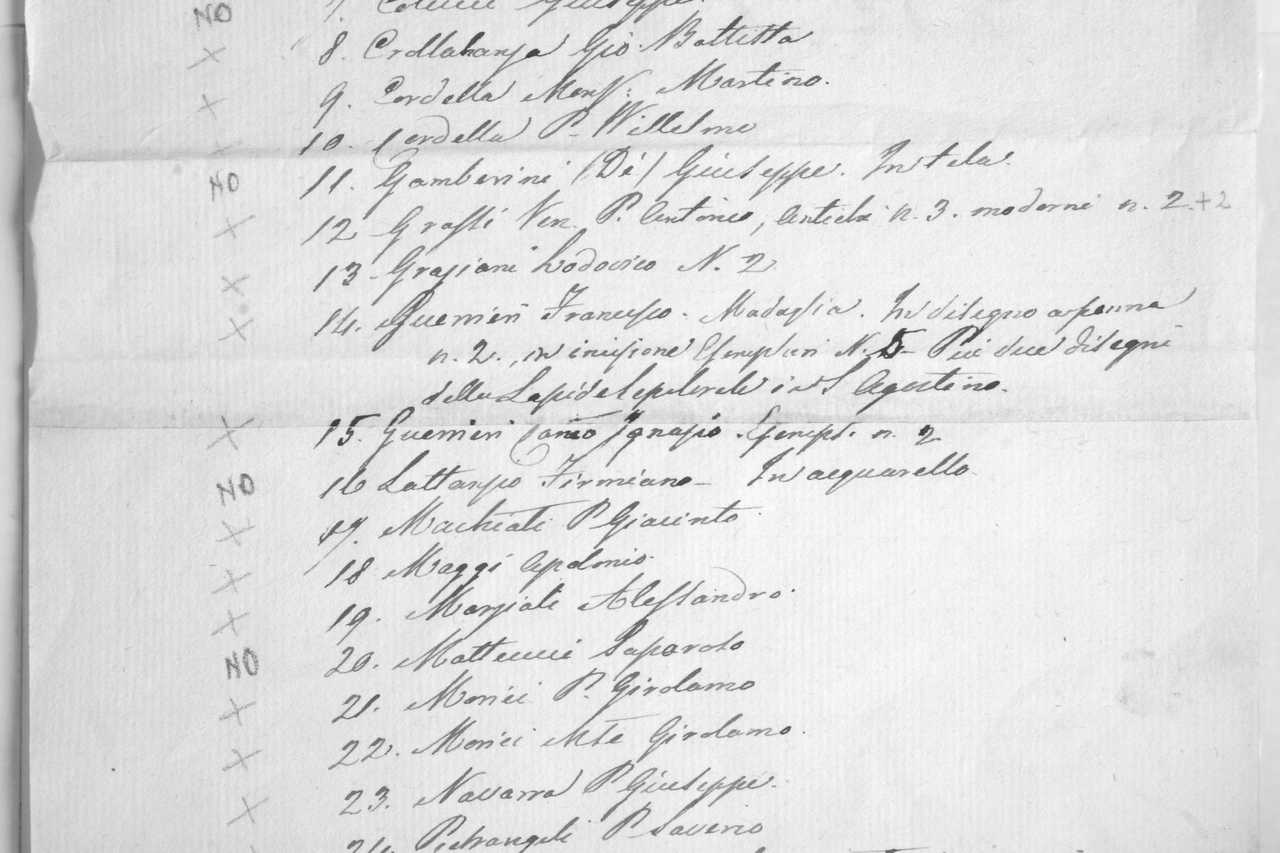 NO 7. Colucci Giuseppe.
X 8. Crollalanza Gio. Battista
X 9. Cordella Mons.: Martino.
10. Cordella P. Willelmo
NO 11. Gamberini (De) Giuseppe. In tela.
X 12 Grassi Ven. P. Antonio, antichi n. 3. moderni n. 2. +2
X 13 Graziani Lodovico N. 2
X 14. Guerrieri Francesco. Medaglia. In disegno a penna
n. 2., in incisione Esemplari N. 5 - Più due disegni
della Lapide Sepolcrale in S. Agostino.
X 15. Guerrieri Ignazio. Esempl. n. 2
NO 16 Lattanzio Firmiano - In acquarello
X 17. Machiati P. Giacinto.
X 18 Maggi Apolonio.
X 19. Marziali Alessandro.
NO 20. Matteucci Saporoso
X 21. Morici P. Girolamo
X 22. Morici Girolamo.
X 23. Navarra P. Giuseppe.
24. Pietrangeli P. Saverio